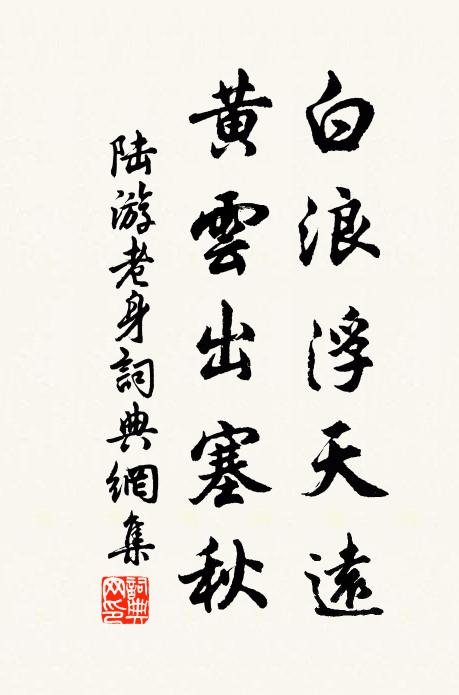 白浪浮天遠
黃雲出塞秋
陸游老身詞典網集
詞典網印